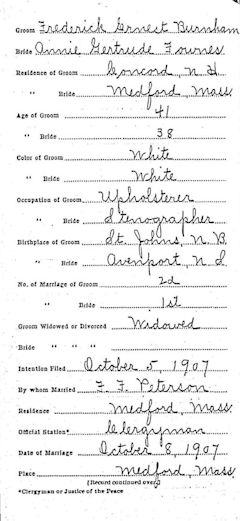 Groom Frederick Ernest Burnham
Bride Annie Gertrude Fownes
Residence of Groom Concord, N H
" Bride Medford, Mass.
Age of Groom 41
" Bride 38
Color of Groom White
" Bride White
Occupation of Groom Upholsterer
" Bride Stenographer
Birthplace of Groom St. Johns, N. B.
" Bride Avenport, N. S.
No. of Marriage of Groom 2d
" Bride 1st
Groom Widowed or Divorced Widowed
Bride " " "
Intention Filed October 5, 1907
By whom Married F. F. Peterson
Residence Medford, Mass.
Official Station* Clergyman
Date of Marriage October 8, 1907
Place Medford, Mass.
(Record continued over.)
*Clergyman or Justice of the Peace